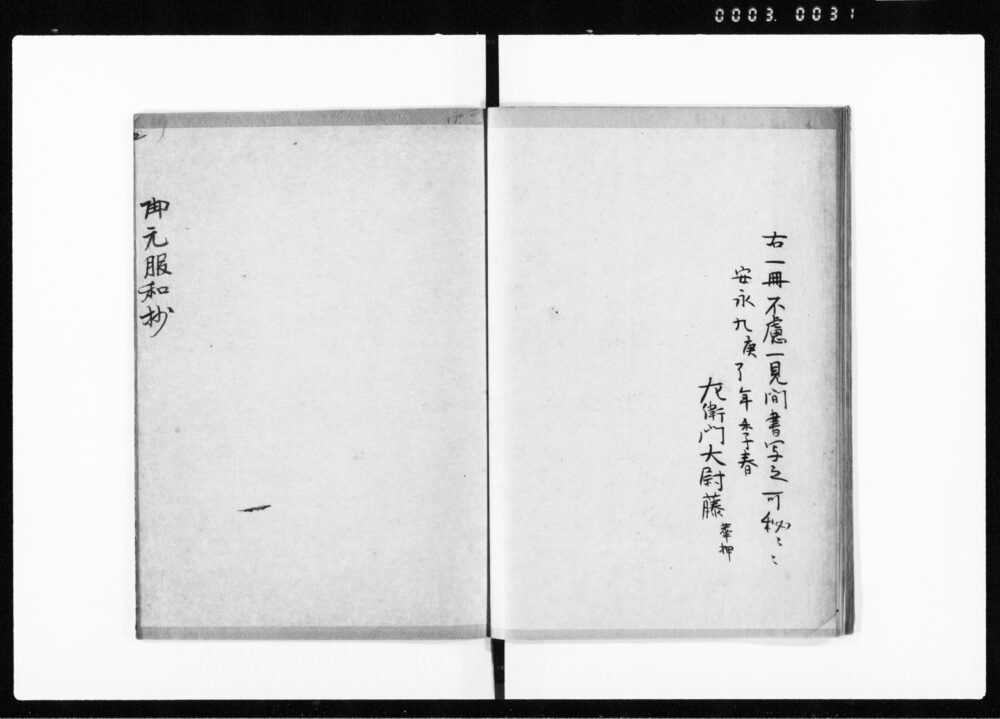 0003. 0031
右一冊不慮一見間書写之可秘〻〻
安永九庚子年季春
左衛門大尉藤 華押
御元服和抄